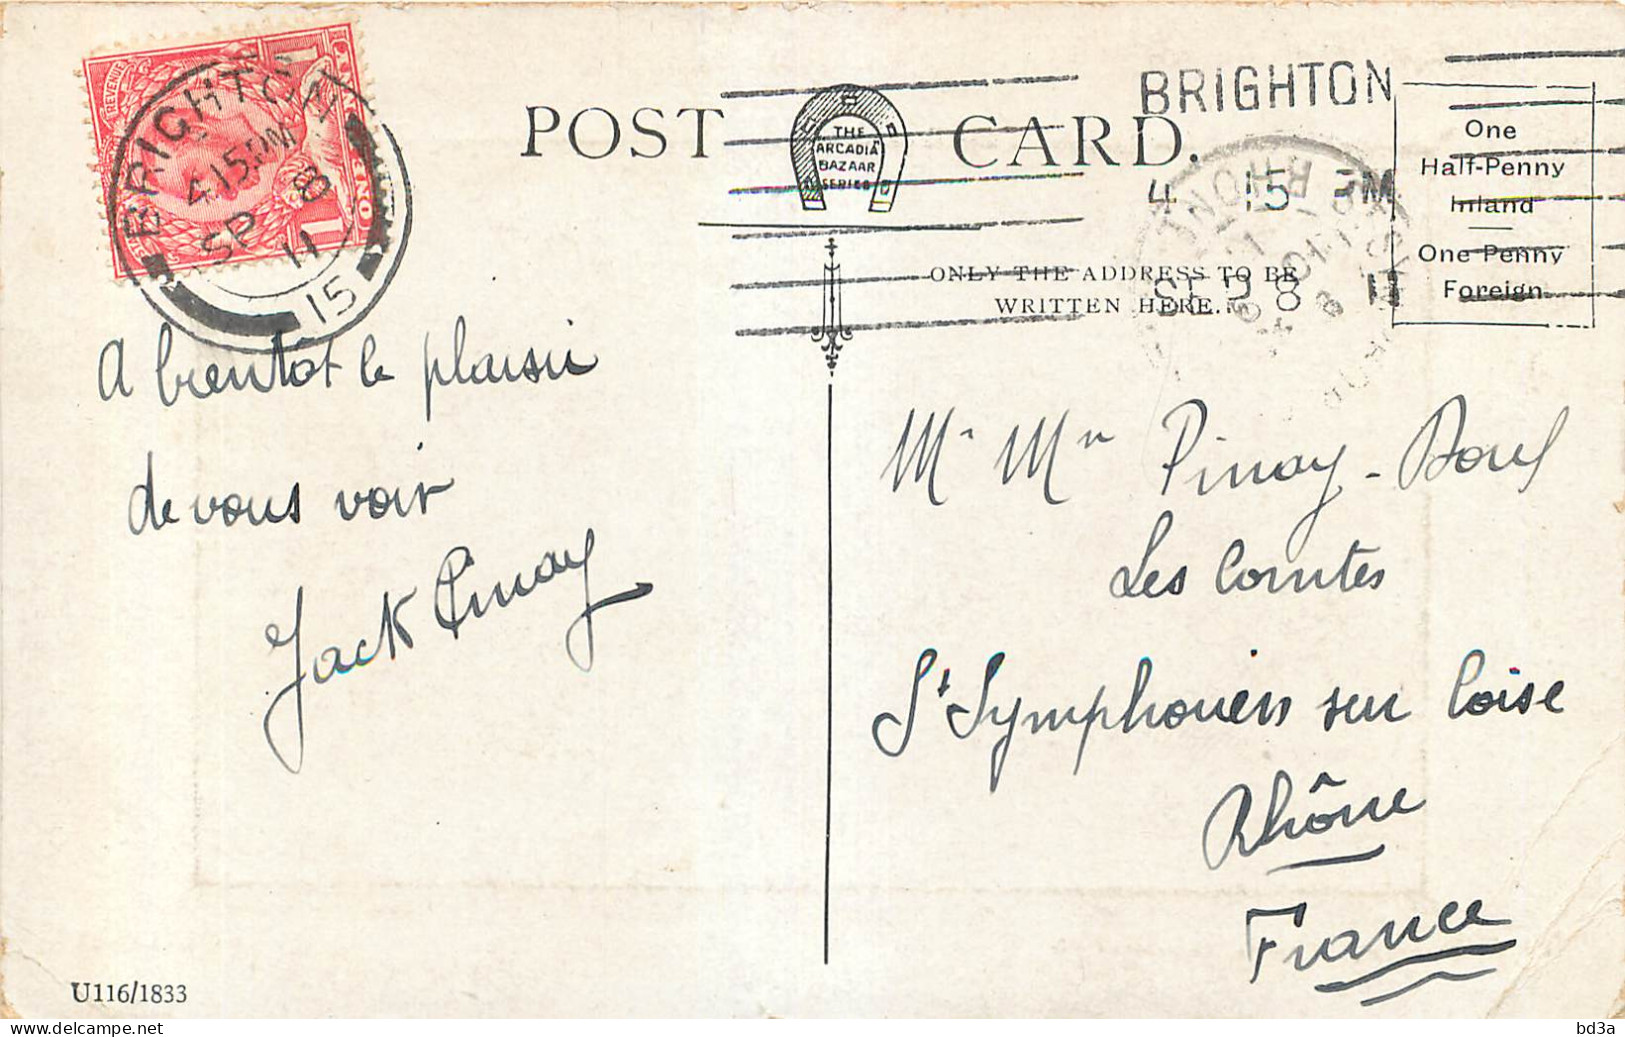 POST CARD.
THE
ARCADIA
BAZAAR
SERIES
BRIGHTON
4 15 PM
SEP 8 11
BRIGHTON
4.15 PM
SP 8
11
15
REVENUE
One
Half-Penny
Inland
One Penny
Foreign
ONLY THE ADDRESS TO BE
WRITTEN HERE.
A bientôt le plaisir
de vous voir
Jack Pinay
Mr Mme Pinay-
Les Comtes
St Symphorien sur Coise
Rhône
France
U116/1833
delcampe.net
bd3a